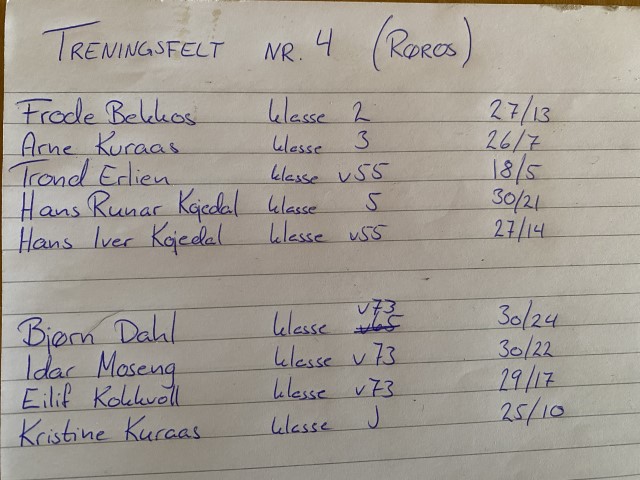 TRENINGSFELT NR. 4 (RØROS)
Frode Bekkos klasse 2 27/13
Arne Kuraas klasse 3 26/7
Trond Erlien klasse v55 18/5
Hans Runar Kojedal klasse 5 30/21
Hans Iver Kojedal klasse v55 27/14
v73
Bjørn Dahl klasse v65 30/24
Idar Moseng klasse v73 30/22
Eilif Kokkvoll klasse v73 29/17
Kristine Kuraas klasse J 25/10